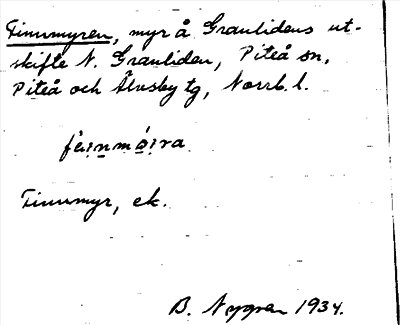 Finnmyren, myr å Granlidens ut-
skifte N. Granliden, Piteå sn,
Piteå och Älvsby tg, Norrb. l.
Finnmyr, ek.
B. Nygren 1934.